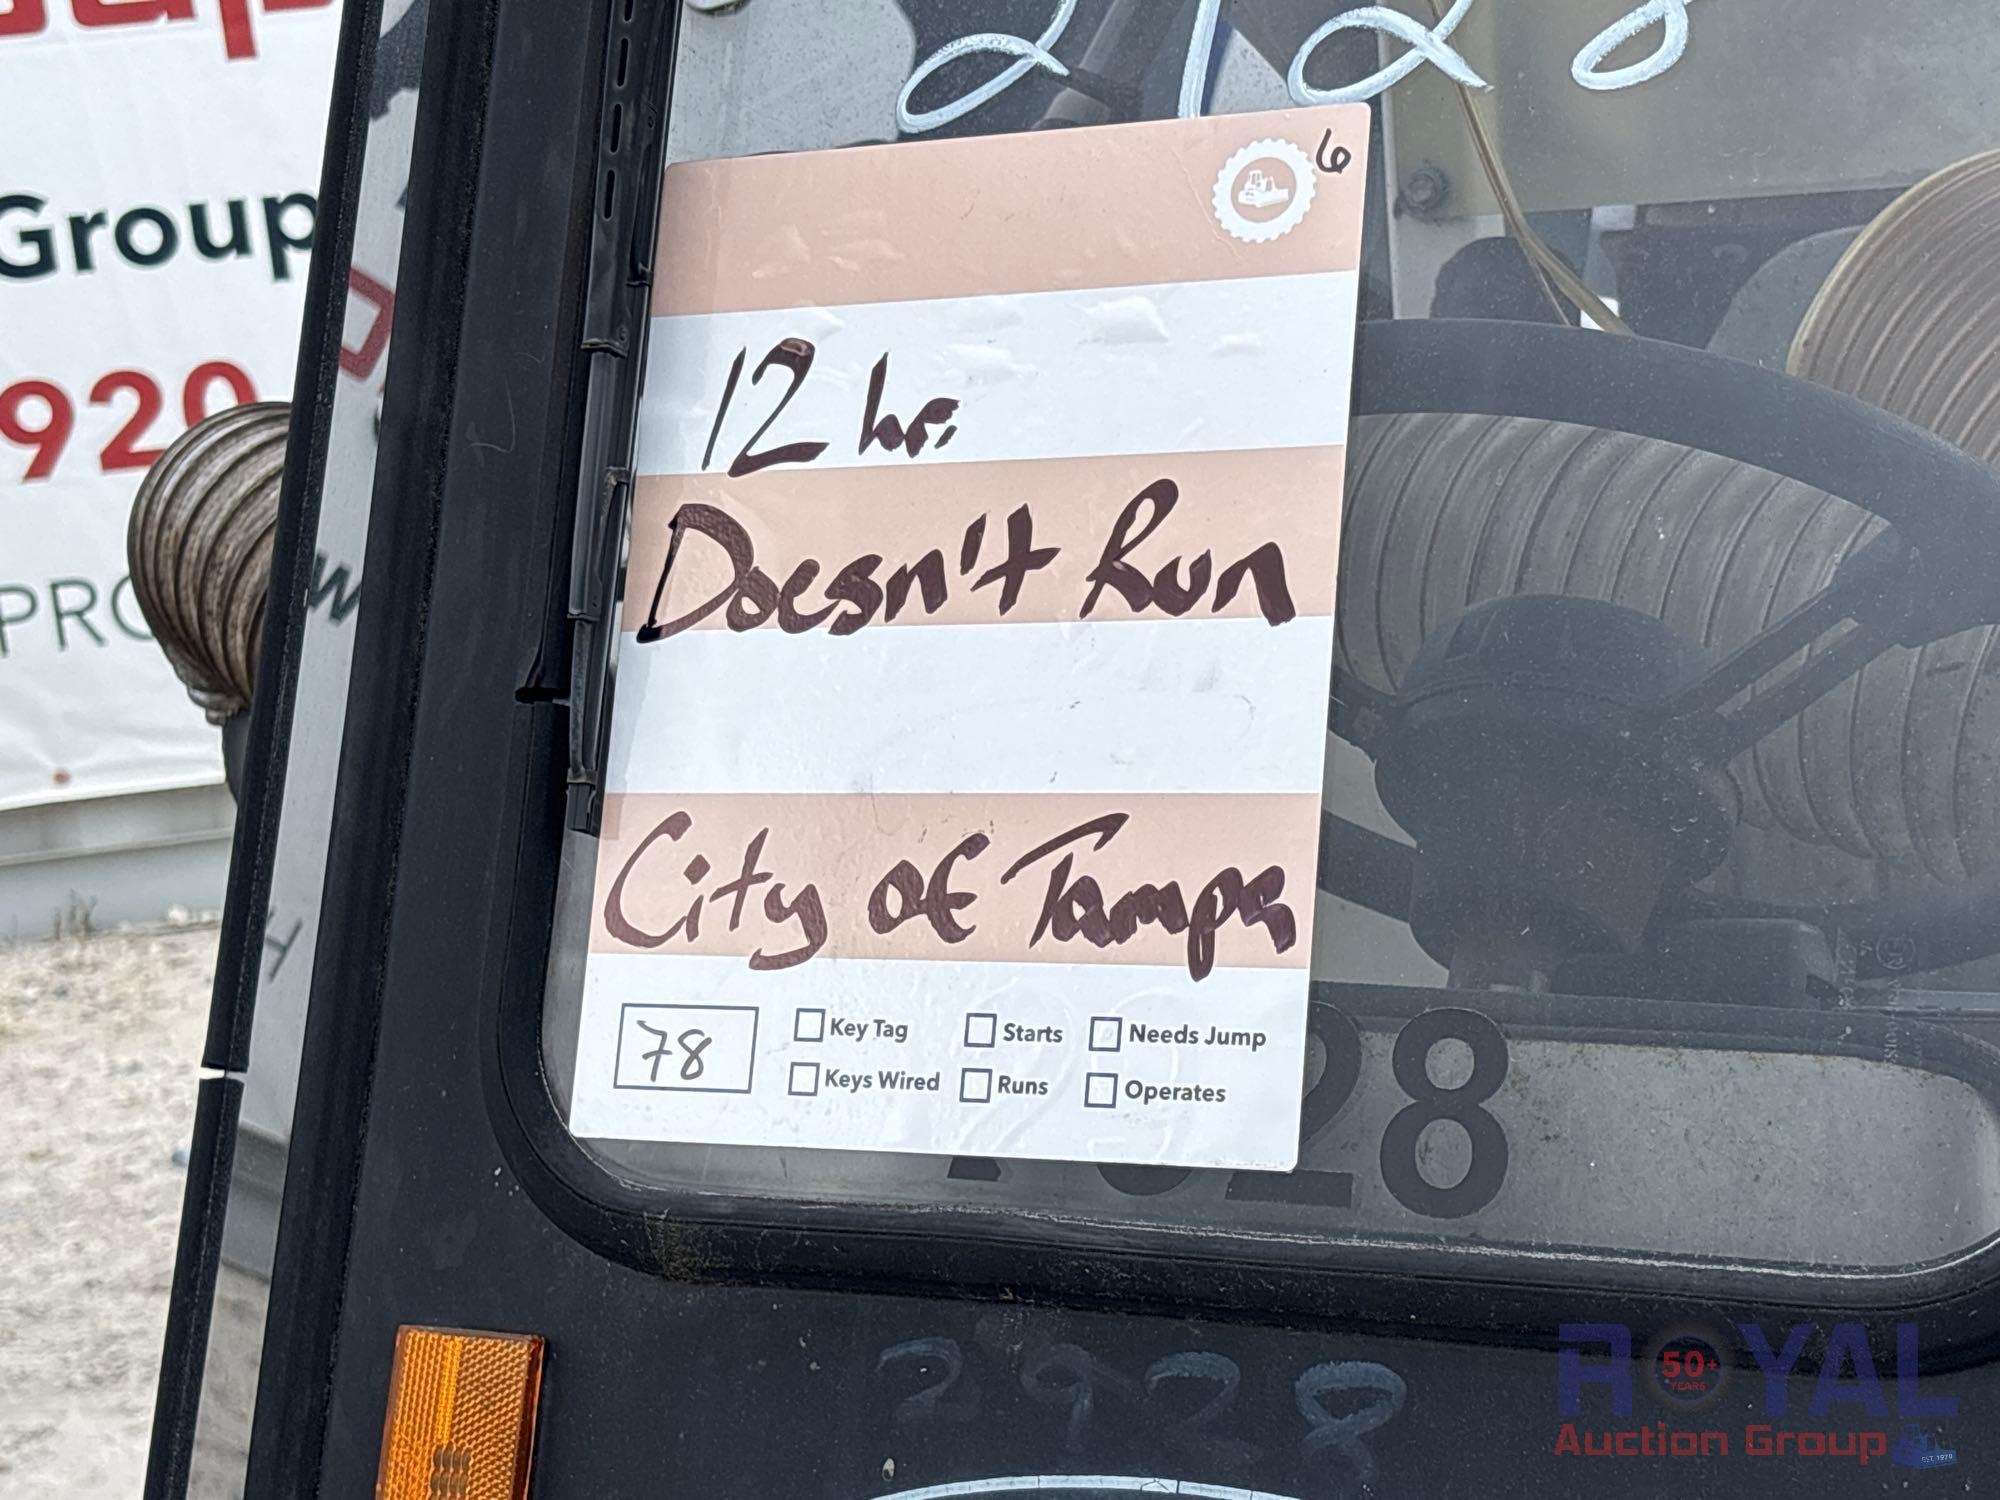 Group
920
PRO
2928
6
12 hr.
Doesn't Run
City of Tampa
78
Key Tag
Starts
Needs Jump
Keys Wired
Runs
Operates
28
2928
ROYAL
50+
YEARS
Auction Group
EST. 1970